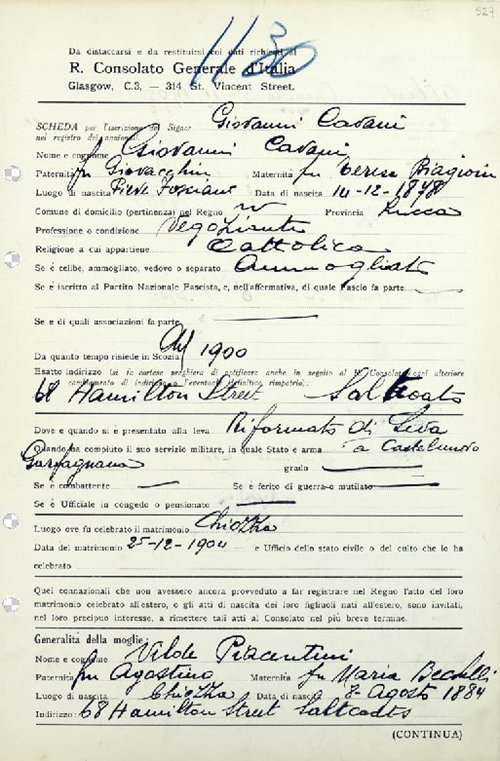 527
1130
Da distaccarsi e da restituirsi coi dati richiesti al
R. Consolato Generale d'Italia
Glasgow, C.3, — 314 St. Vincent Street.
SCHEDA per l'iscrizione del Signor Giovanni Cavani
nel registro dei nazionali.
Nome e cognome Giovanni Cavani
Paternità fu Giovacchin Maternità fu Teresa Biagioni
Luogo di nascita Pieve Fosciana Data di nascita 14-12-1878
Comune di domicilio (pertinenza) nel Regno " Provincia Lucca
Professione o condizione Negoziante
Religione a cui appartiene Cattolica
Se è celibe, ammogliato, vedovo o separato Ammogliato
Se è iscritto al Partito Nazionale Fascista, e, nell'affermativa, di quale Fascio fa parte —
Se e di quali associazioni fa parte —
Da quanto tempo risiede in Scozia Dal 1900
Esatto indirizzo (si fa cortese preghiera di notificare anche in seguito al R. Consolato ogni ulteriore
cambiamento di indirizzo o l'eventuale definitivo rimpatrio):
68 Hamilton Street Saltcoats
Dove e quando si è presentato alla leva Riformato di Leva
Quando ha compiuto il suo servizio militare, in quale Stato e arma a Castelnuovo
Garfagnana grado —
Se è combattente — Se è ferito di guerra o mutilato —
Se è Ufficiale in congedo o pensionato —
Luogo ove fu celebrato il matrimonio Chiozza
Data del matrimonio 25-12-1904 e Ufficio dello stato civile o del culto che lo ha
celebrato
Quei connazionali che non avessero ancora provveduto a far registrare nel Regno l'atto del loro
matrimonio celebrato all'estero, o gli atti di nascita dei loro figliuoli nati all'estero, sono invitati,
nel loro precipuo interesse, a rimettere tali atti al Consolato nel più breve termine.
Generalità della moglie:
Nome e cognome Vilde Piacentini
Paternità fu Agostino Maternità fu Maria Bechelli
Luogo di nascita Chiozza Data di nascita 8 Agosto 1884
Indirizzo: 68 Hamilton Street Saltcoats
(CONTINUA)